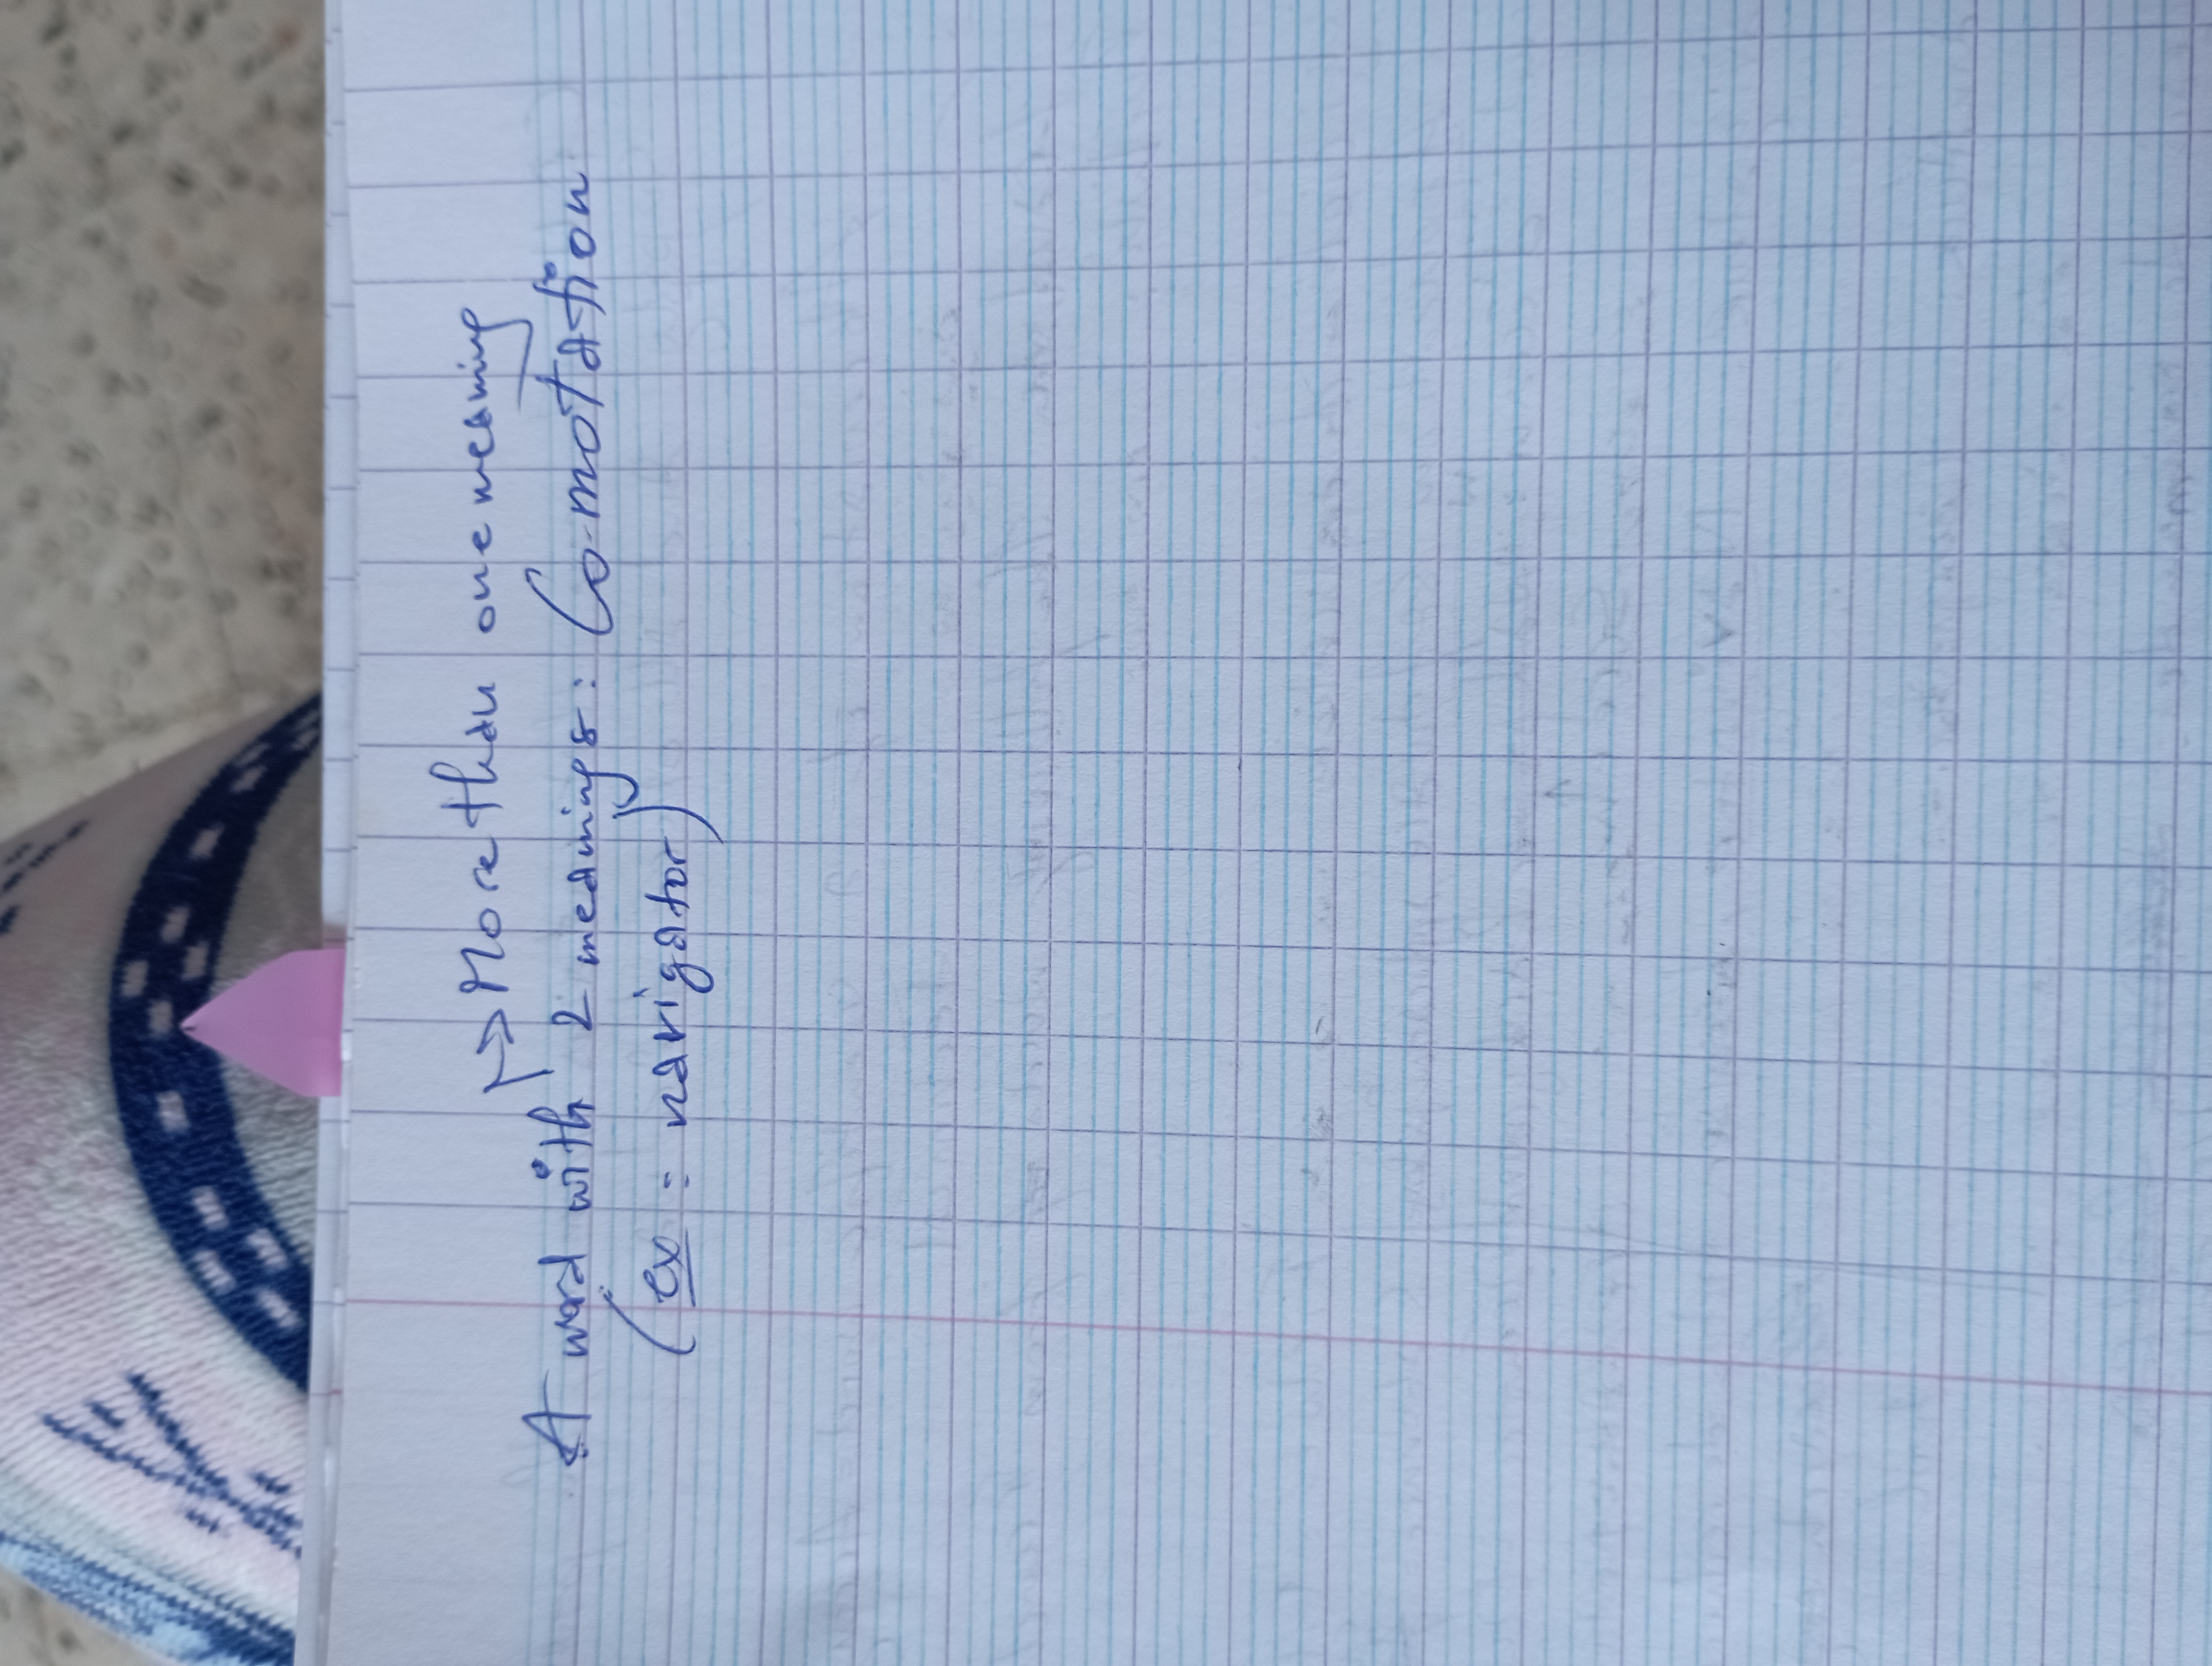 → More than one meaning
A word with 2 meanings: Co-motation
(ex: navigator)